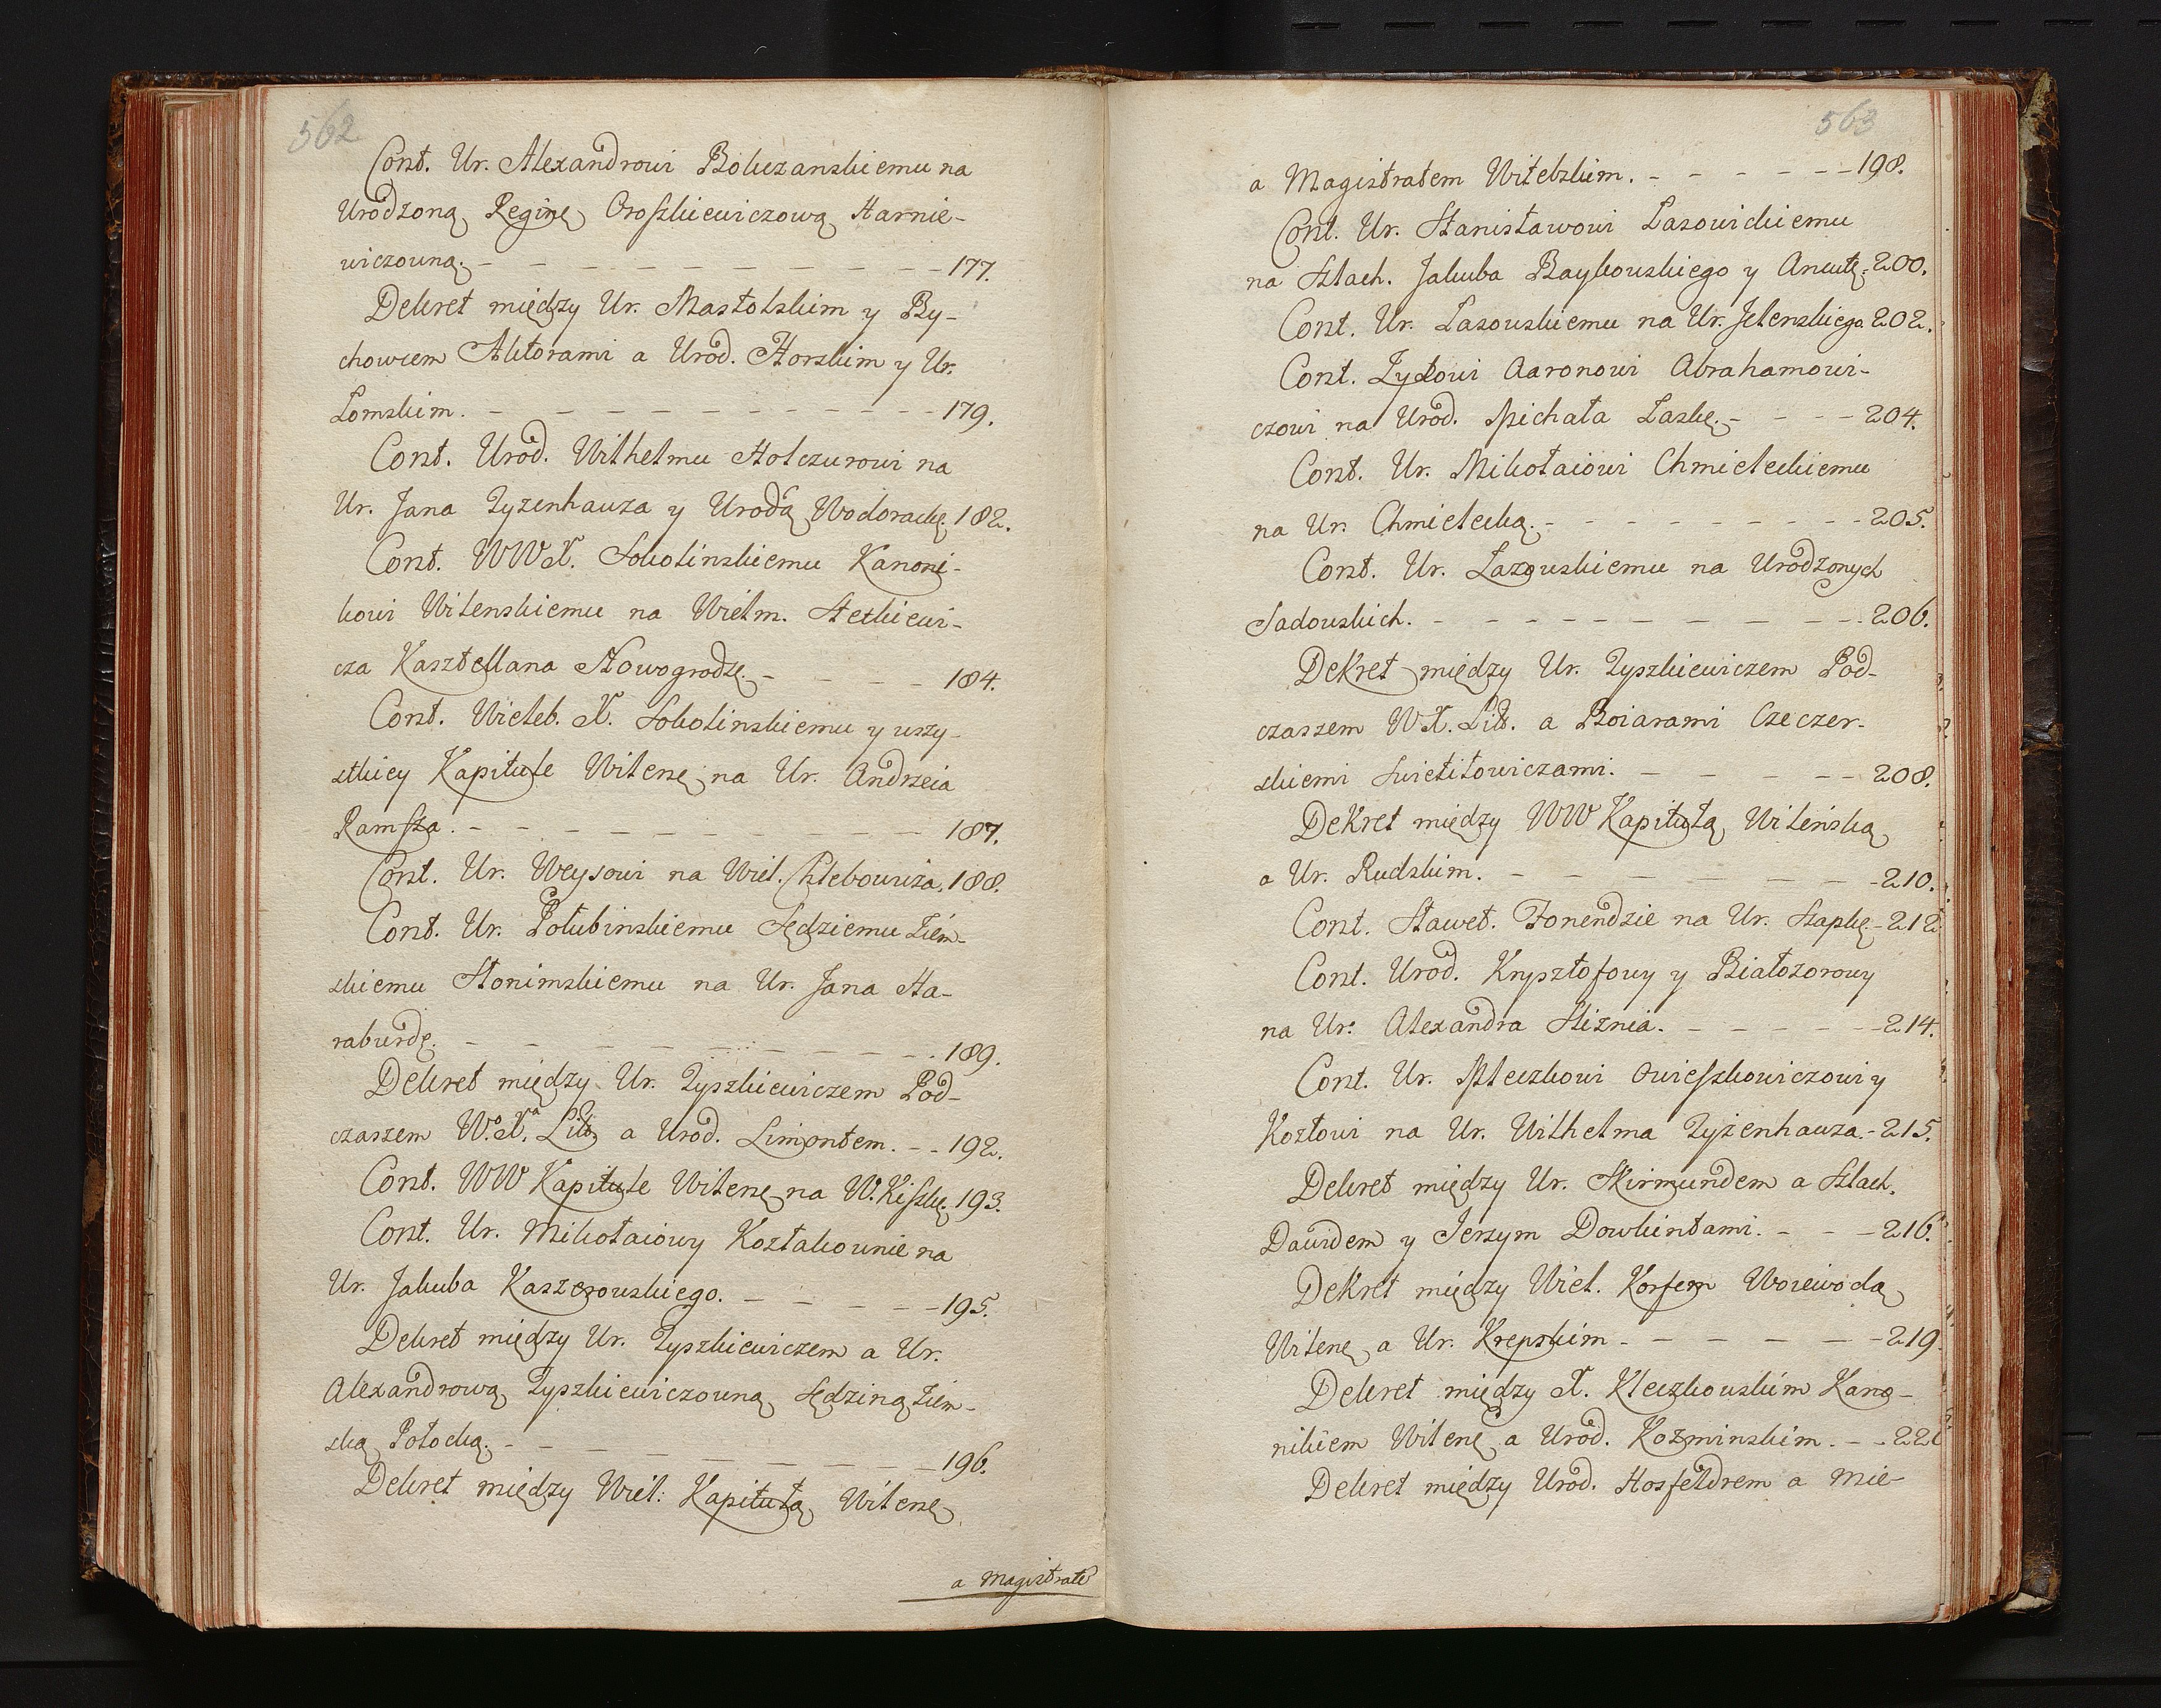 562
Const. Ur. Alexandrowi Bokczanskiemu na
Urodzoną Reginę Oroszkiewiczową Harnie-
wiczowną. - - - - - - - - - 177.
Dekret między Ur. Mastolskim y By-
chowcem Aktorami a Urod. Horskim y Ur.
Łomskim. - - - - - - - - - 179.
Const. Urod. Wilhelmu Holczurowi na
Ur. Jana Zyzenhauza y Urodą Wodoracką. 182.
Const. WWX. Sokolinskiemu Kanoni-
kowi Wilenskiemu na Wielm. Stetkiewi-
cza Kasztellana Nowogrodz. - - - - 184.
Const. Wieleb. X. Sokolinskiemu y wszy-
stkiey Kapitule Wilenę na Ur. Andrzeia
Ramsza. - - - - - - - - - 187.
Const. Ur. Weysowi na Wiel. Chlebowicza. 188.
Const. Ur. Połubinskiemu Sędziemu Ziem-
skiemu Słonimskiemu na Ur. Jana Ha-
raburdę. - - - - - - - - - 189.
Dekret między Ur. Tyszkiewiczem Pod-
czaszem W.X. Litt. a Urod. Limontem. - - 192.
Const. WW Kapitule Wilenę na W. Kiszkę. 193.
Const. Ur. Mikołaiowy Koztakownie na
Ur. Jakuba Kaszerowskiego. - - - - - 195.
Dekret między Ur. Tyszkiewiczem a Ur.
Alexandrową Tyszkiewiczowną Sędziną Ziem-
ską Połocką. - - - - - - - - 196.
Dekret między Wiel: Kapitułą Wilenę
a Magistrate
563
a Magistratem Witebskim. - - - - - - 198.
Const. Ur. Stanisławowi Łazowickiemu
na Szlach. Jakuba Baykowskiego y Ancutę. - 200.
Const. Ur. Łazowskiemu na Ur. Jelenskiego. 202.
Const. Zydowi Aaronowi Abrahamowi-
czowi na Urod. Michała Laskę. - - - - 204.
Const. Ur. Mikołaiowi Chmieleckiemu
na Ur. Chmielecką. - - - - - - - - 205.
Const. Ur. Łazowskiemu na Urodzonych
Sadowskich. - - - - - - - - - 206.
Dekret między Ur. Tyszkiewiczem Pod-
czaszem W X. Lit. a Boiarami Czeczer-
skiemi Swietiłowiczami. - - - - - 208.
Dekret między WW Kapitułą Wileńską
a Ur. Rudskim. - - - - - - - - 210.
Const. Sławet. Fonendzie na Ur. Szapkę. - 212
Const. Urod. Krysztofowy y Białozorowy
na Ur. Alexandra Sliznia. - - - - - 214.
Const. Ur. Mleczkowi Owieszkowiczowi y
Kozłowi na Ur. Wilhelma Zyzenhauza. - 215.
Dekret między Ur. Skirmundem a Szlach.
Dawidem y Jerzym Dowkintami. - - - 216.
Dekret między Wiel. Korfem Woiewodą
Wilenę a Ur. Krepskim - - - - - - 219.
Dekret między X. Kleczkowskim Kano-
nikiem Wilenę a Urod. Kozminskim. - - 221
Dekret między Urod. Hosfeldrem a Mie-